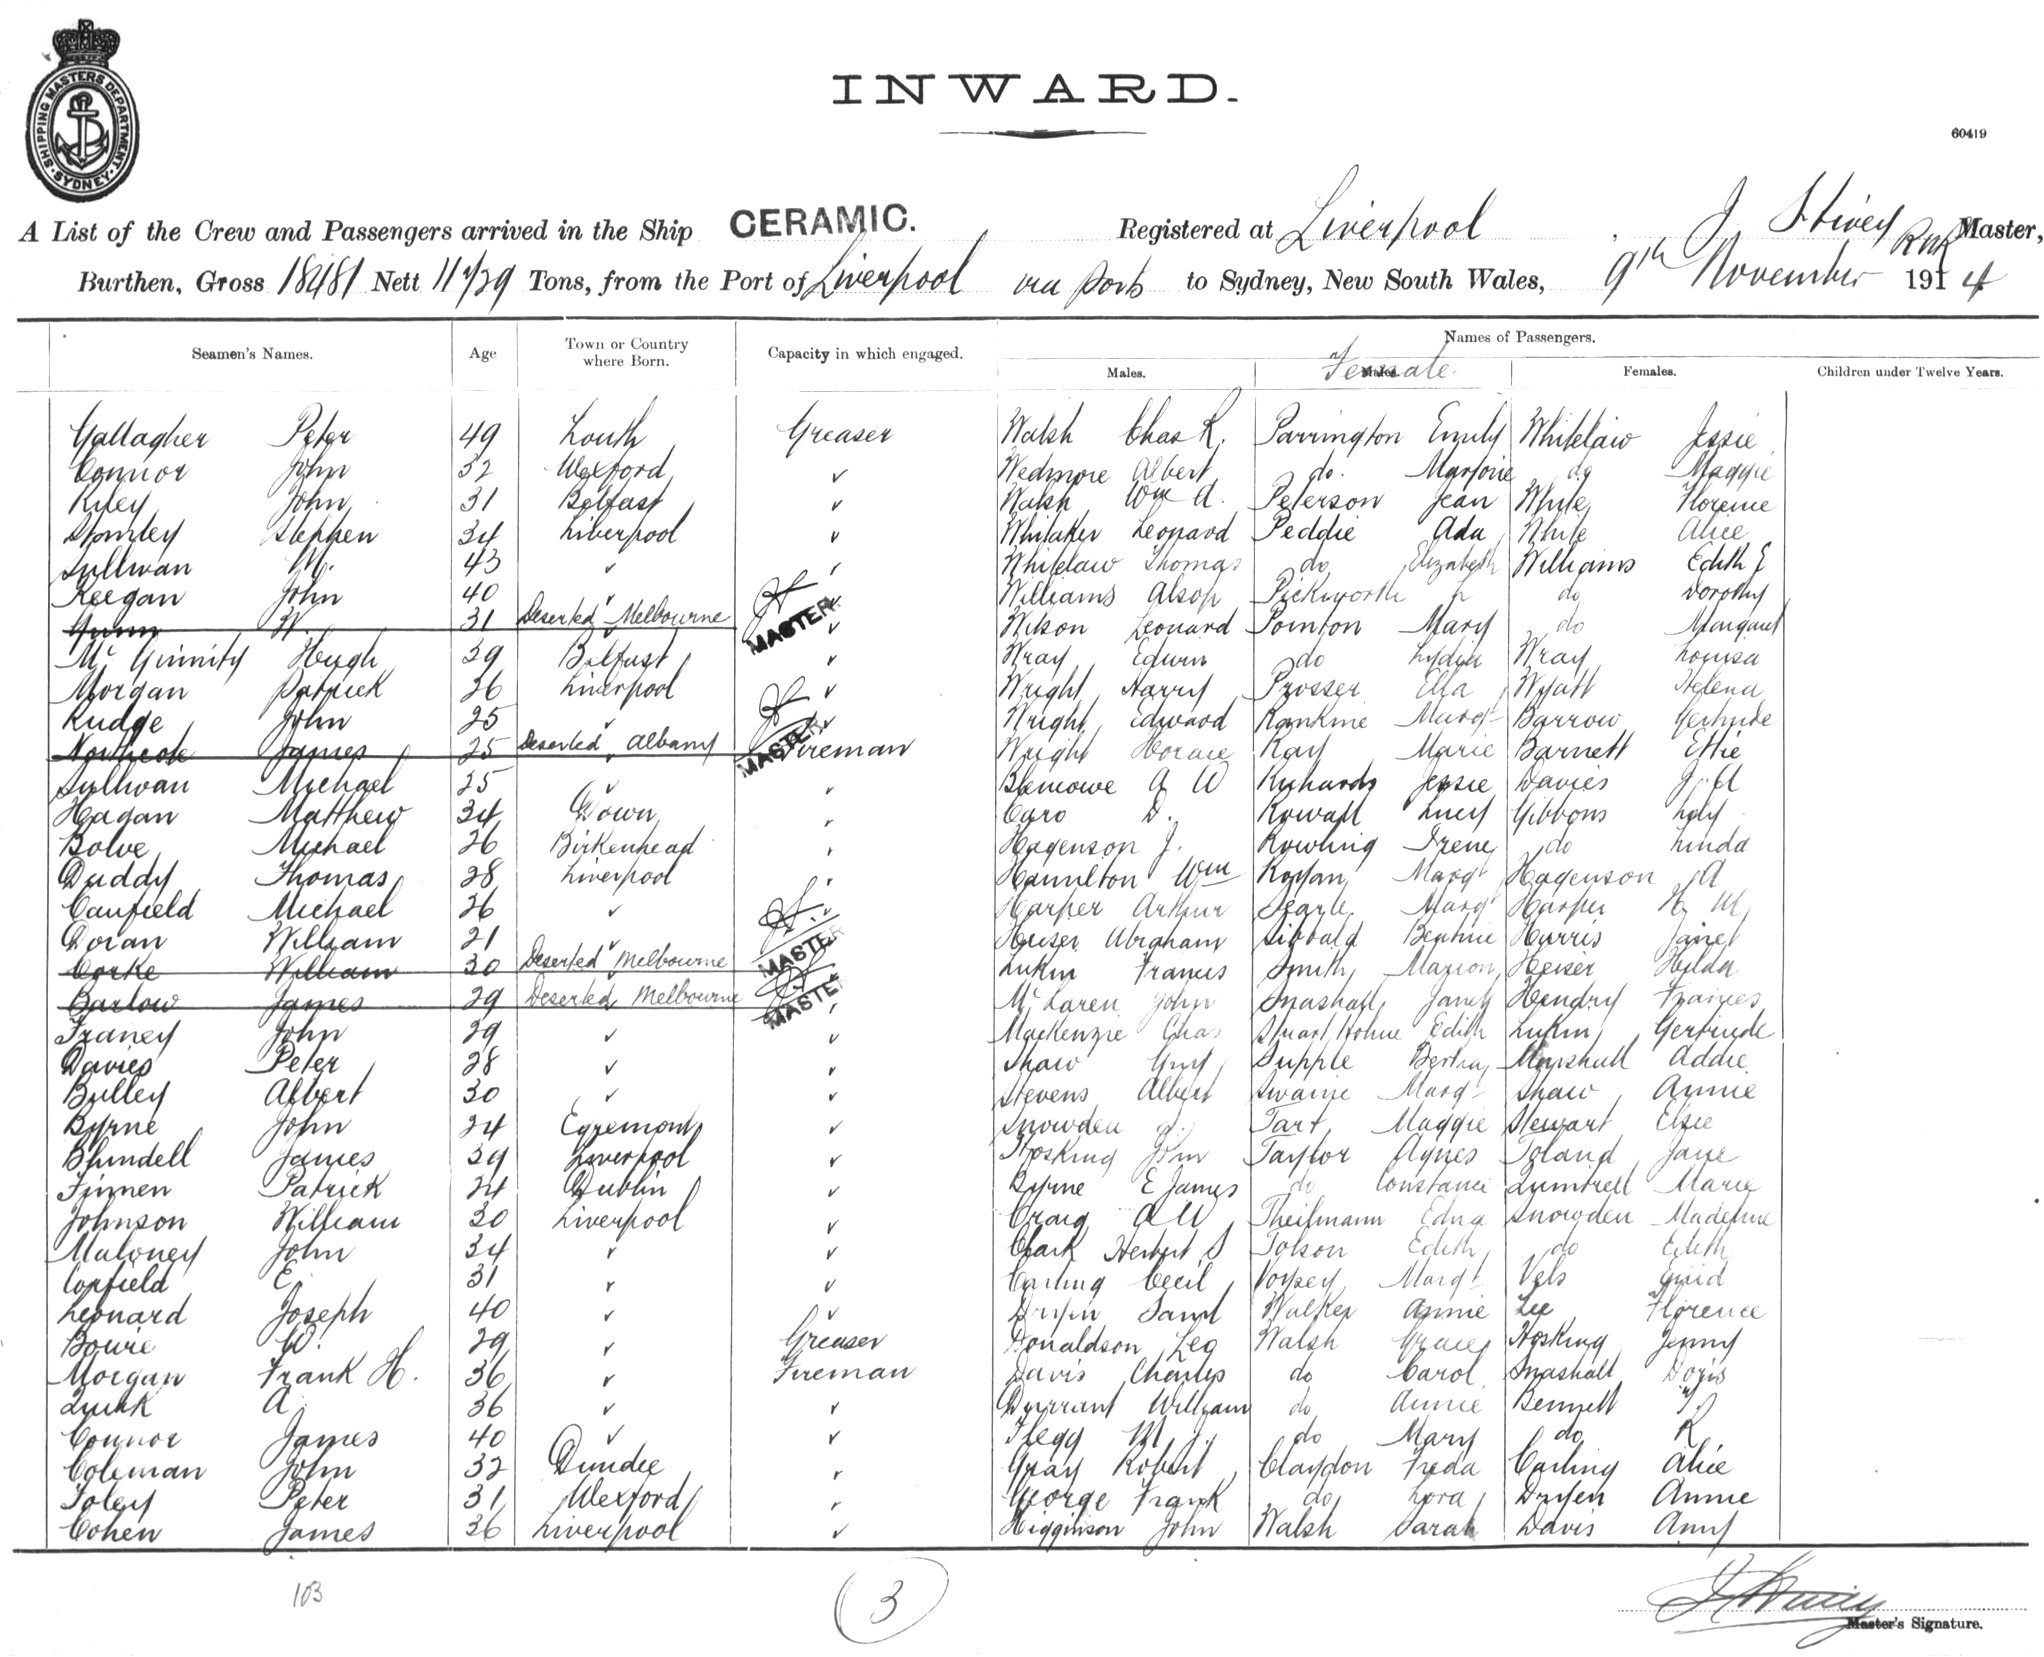 SHIPPING MASTERS DEPARTMENT. SYDNEY.
INWARD.
60419
A List of the Crew and Passengers arrived in the Ship CERAMIC. Registered at Liverpool, J Stivey RNR Master,
Burthen, Gross 18481 Nett 11729 Tons, from the Port of Liverpool via Ports to Sydney, New South Wales, 9th November 1914
Names of Passengers.
Seamen's Names. Age Town or Country where Born. Capacity in which engaged. Males. Males. Female Females. Children under Twelve Years.
Gallagher Peter 49 Louth Greaser Walsh Chas R. Parrington Emily Whitelaw Jessie
Connor John 32 Wexford ✓ Wedmore Albert do. Marjorie do Maggie
Riley John 31 Belfast ✓ Walsh Wm A. Peterson Jean White Florence
Stanley Stephen 34 Liverpool ✓ Whitaker Leonard Peddie Ada White Alice
Sullivan M. 43 ✓ ✓ Whitelaw Thomas do Elizabeth Williams Edith E
Keegan John 40 ✓ ✓ Williams Alsop Pickworth do Dorothy
Gunn W. 31 Deserted Melbourne MASTER ✓ Wilson Leonard Pointon Mary do Margaret
Mc Ginnity Hugh 39 Belfast ✓ Wray Edwin do Lydia Wray Louisa
Morgan Patrick 26 Liverpool ✓ Wright Harry Prosser Ella Wyatt Helena
Rudge John 25 ✓ ✓ Wright Edward Rankine Margt Barrow Gertrude
Northcote James 25 Deserted Albany MASTER Fireman Wright Horace Ray Marie Barnett Ettie
Sullivan Michael 25 ✓ ✓ A W Richards Jessie Davies J. A
Hagan Matthew 34 Down ✓ Caro D. Rowatt Lucy Gibbons Lily
Bolve Michael 26 Birkenhead ✓ Hagenson J. Rowling Irene do Linda
Duddy Thomas 28 Liverpool ✓ Hamilton Wm Margt Hagenson A
Caufield Michael 26 ✓ ✓ Harper Arthur Searle Margt Harper H M
Doran William 21 ✓ Heiser Abraham Sibbald Beatrice Harris Janet
Corke William 30 Deserted Melbourne MASTER Lukin Francis Smith Marion Heiser Hilda
Barlow James 29 Deserted Melbourne MASTER McLaren John Snashall Janet Hendry Frances
Franey John 29 ✓ ✓ Mackenzie Chas Stuart Hohne Edith Lukin Gertrude
Davies Peter 28 ✓ ✓ Shaw Guy Supple Bertha Marshall Addie
Bulley Albert 30 ✓ ✓ Stevens Albert Swaine Margt Shaw Annie
Byrne John 24 Egremont ✓ Snowden J. Tart Maggie Stewart Elsie
Blundell James 39 Liverpool ✓ Hosking John Taylor Agnes Toland Jane
Finnen Patrick 24 Dublin ✓ Byrne E James do Constance Luntrell Marie
Johnson William 30 Liverpool ✓ Craig A W Theilmann Edna Snowden Madeline
Maloney John 34 ✓ ✓ Clark Herbert S Tolson Edith do Edith
Corfield E. 31 ✓ ✓ Carling Cecil Voysey Margt Vels Enid
Leonard Joseph 40 ✓ ✓ Dryen Saml Walker Annie Lee Florence
Bowie W. 29 ✓ Greaser Donaldson Leo Walsh Grace Hosking Jenny
Morgan Frank H. 36 ✓ Fireman Davis Charles do Carol Snashall Doris
Quirk A. 36 ✓ ✓ Durrant William do Annie Bennett
Connor James 40 ✓ ✓ Flegg M J. do Mary do R
Coleman John 32 Dundee ✓ Gray Robert Claydon Freda Carling Alice
Foley Peter 31 Wexford ✓ George Frank do Lora Dryen Annie
Cohen James 36 Liverpool ✓ Higginson John Walsh Sarah Davis Amy
103
3
Master's Signature.